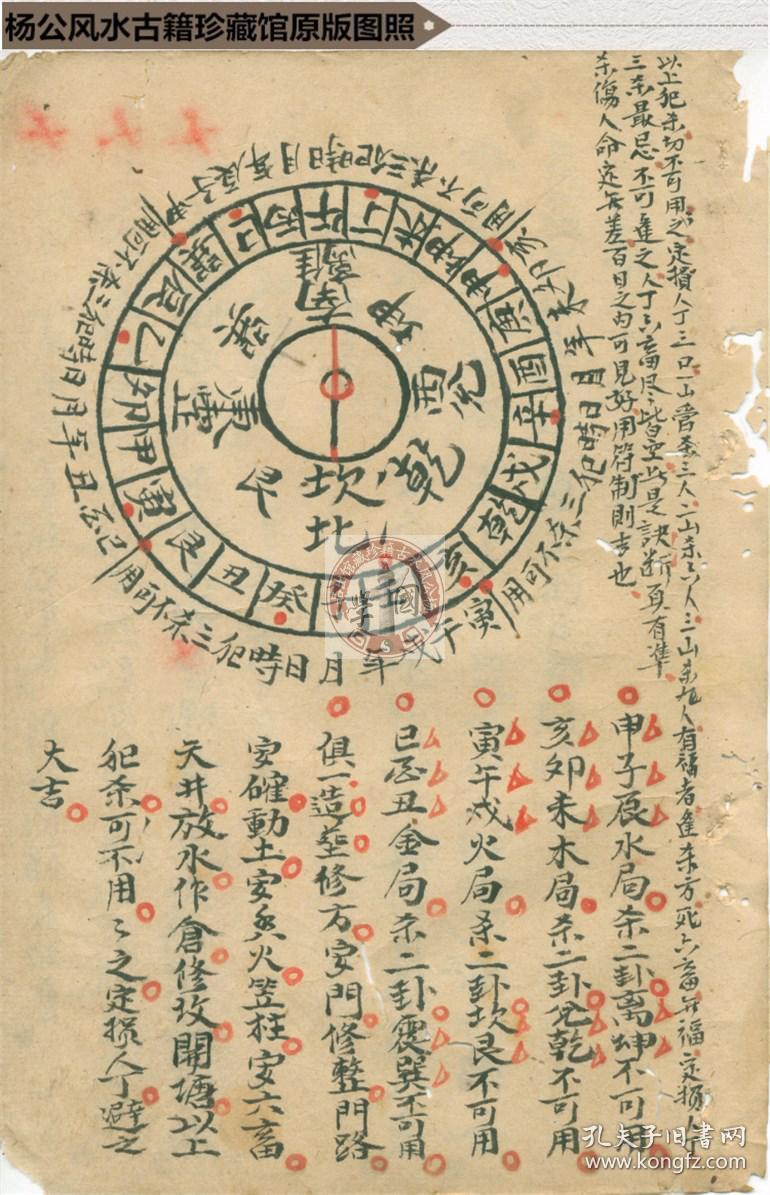 杨公风水古籍珍藏馆原版图照
以上犯杀切不可用之定損人丁三口一山管杀三人二山杀六人三山杀九人有福者逢杀方死六畜無福定損人丁
三杀最忌不可逢之人丁六畜尽皆空此是訣断真有準
杀傷人命定無差百日之内可見好用符制則吉也
申子辰年月日時犯三杀不可用
亥卯未年月日時犯三杀不可用
寅午戌年月日時犯三杀不可用
巳酉丑年月日時犯三杀不可用
丙午丁未坤申庚酉辛戌乾亥壬子癸丑艮寅甲卯乙辰巽巳
南離
坤
西兌
乾
坎北
艮
東震
巽
申子辰水局杀二卦离坤不可用
亥卯未木局杀二卦兌乾不可用
寅午戌火局杀二卦坎艮不可用
巳酉丑金局杀二卦震巽不可用
俱一造塟修方安門修整門路
安碓動土安香火笠柱安六畜
天井放水作倉修攻開塘以上
犯杀可不用々之定損人丁避之
大吉
孔夫子旧书网
www.kongfz.com